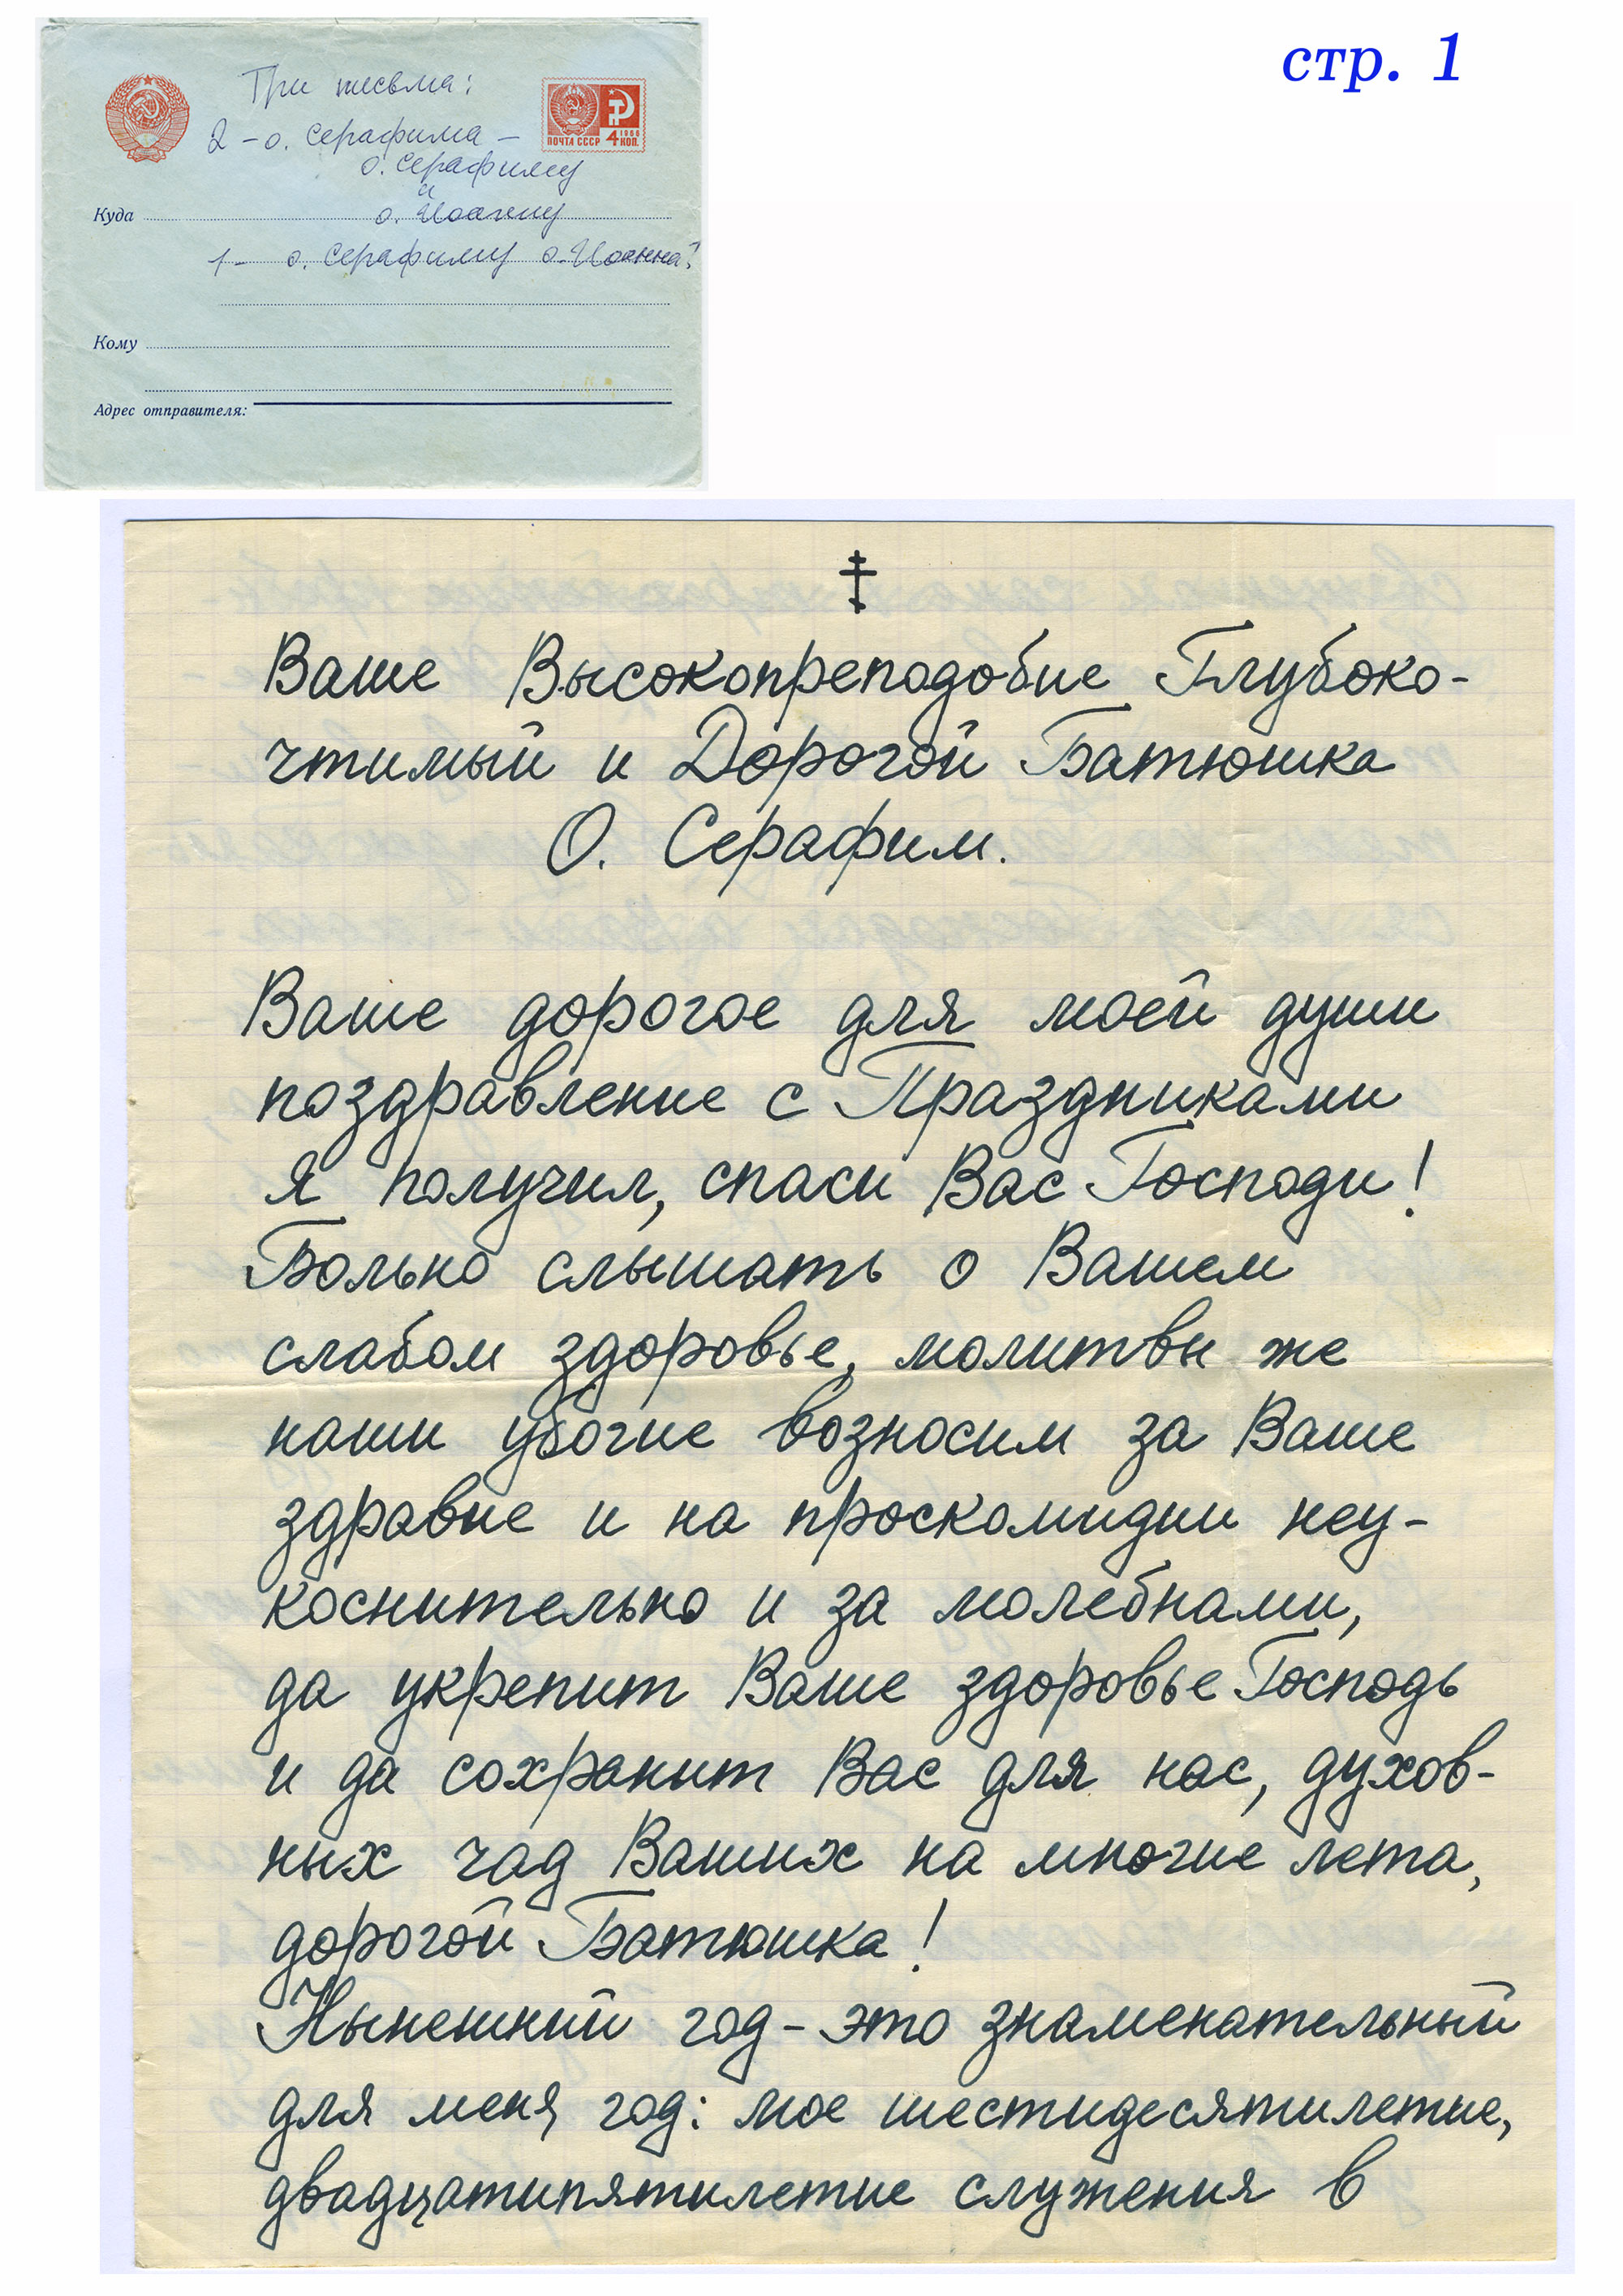 стр. 1
Три письма:
2 – о. Серафима –
о. Серафиму
и
о. Иоанну
1 – о. Серафиму о. Иоанна?
ПОЧТА СССР 4 КОП.
1966
Куда
Кому
Адрес отправителя:
Ваше Высокопреподобие Глубоко-
чтимый и Дорогой Батюшка
О. Серафим.
Ваше дорогое для моей души
поздравление с Праздниками
я получил, спаси Вас Господи!
Больно слышать о Вашем
слабом здоровье, молитвы же
наши убогие возносим за Ваше
здравие и на проскомидии неу-
коснительно и за молебнами,
да укрепит Ваше здоровье Господь
и да сохранит Вас для нас, духов-
ных чад Ваших на многие лета,
дорогой Батюшка!
Нынешний год – это знаменательный
для меня год: мое шестидесятилетие,
двадцатипятилетие служения в